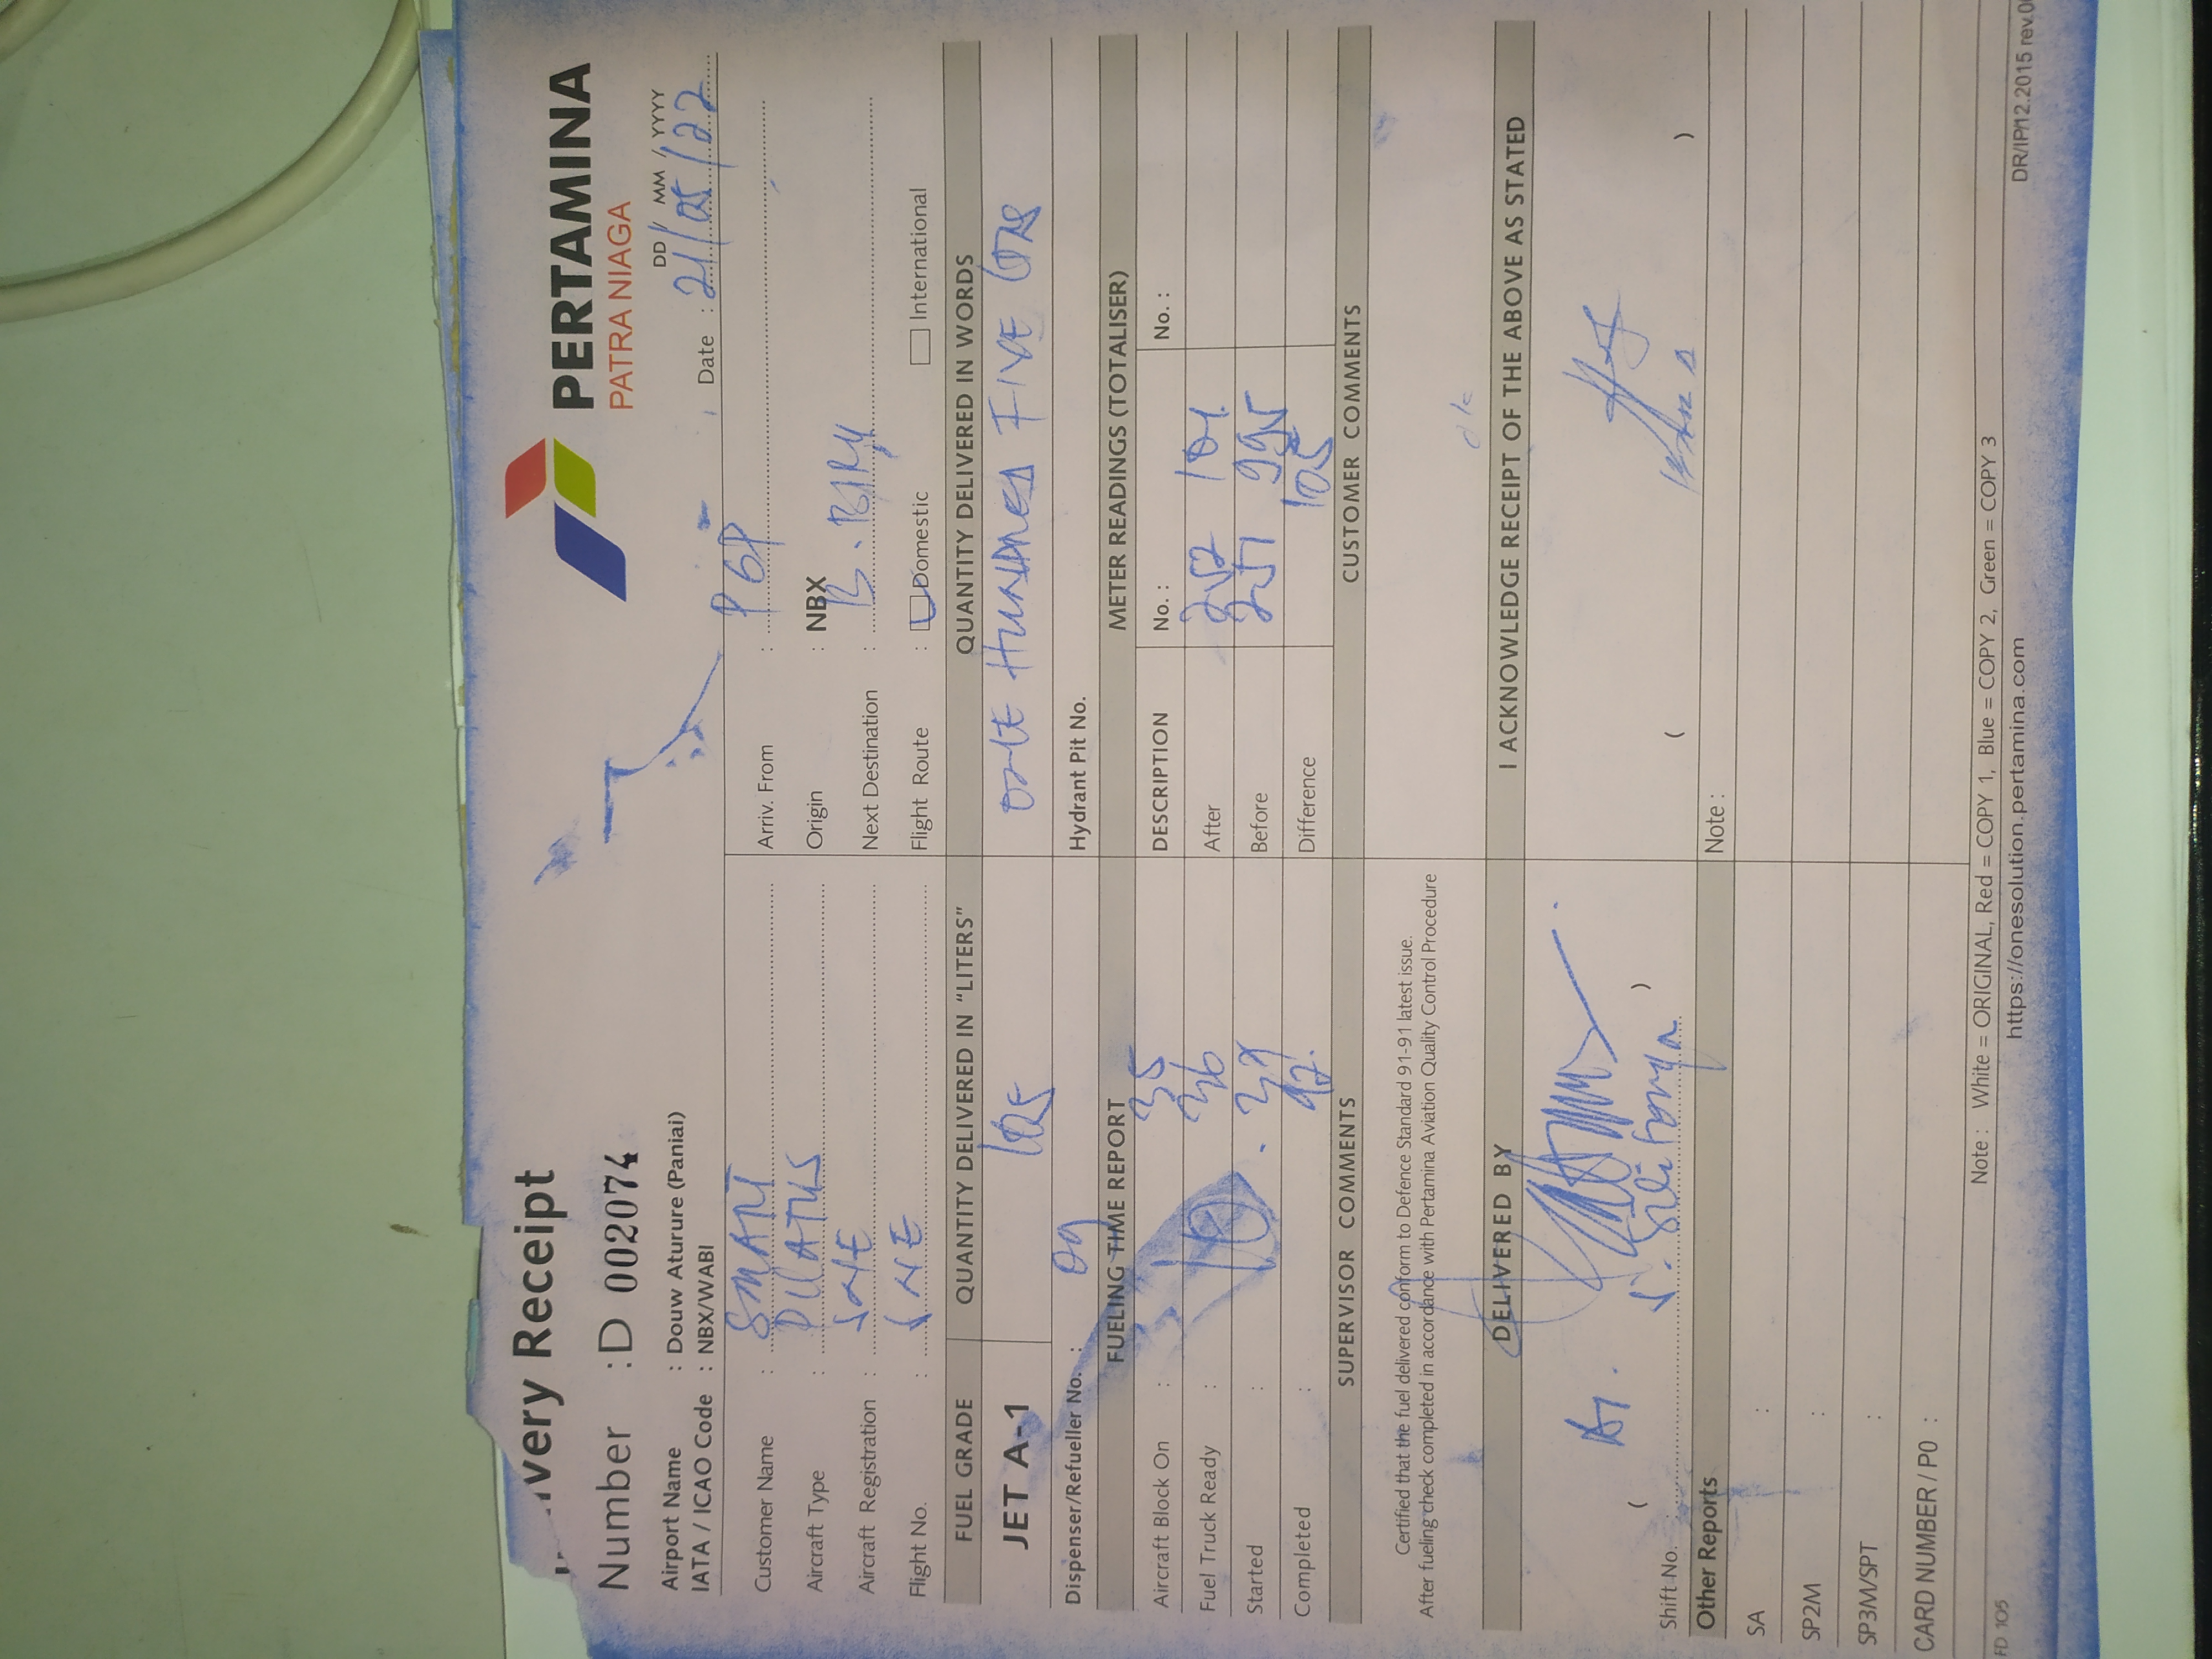 PERTAMINA
PATRA NIAGA
very Receipt
Number : D 002074
Airport Name : Douw Aturure (Paniai)
IATA / ICAO Code : NBX/WABI
DD / MM / YYYY
Date : 21/05/22
Customer Name : SMART
Aircraft Type : PILATUS
Aircraft Registration : SNE
Flight No. : SNE
Arriv. From :
Origin : NBX
Next Destination :
Flight Route : Domestic International
FUEL GRADE QUANTITY DELIVERED IN "LITERS" QUANTITY DELIVERED IN WORDS
JET A-1 105 ONE HUNDRED FIVE
Dispenser/Refueller No. : 09 Hydrant Pit No.
FUELING TIME REPORT METER READINGS (TOTALISER)
Aircraft Block On : 35 DESCRIPTION No. : No. :
Fuel Truck Ready : 36 After 252 104
Started : 39 Before 251 995
Completed : 42 Difference 105
SUPERVISOR COMMENTS CUSTOMER COMMENTS
Certified that the fuel delivered conform to Defence Standard 91-91 latest issue.
After fueling check completed in accordance with Pertamina Aviation Quality Control Procedure
DELIVERED BY I ACKNOWLEDGE RECEIPT OF THE ABOVE AS STATED
( ) ( )
Shift No.
Other Reports Note :
SA :
SP2M :
SP3M/SPT :
CARD NUMBER / P0 :
Note : White = ORIGINAL, Red = COPY 1, Blue = COPY 2, Green = COPY 3
FD 105 https://onesolution.pertamina.com DR/IP/12.2015 rev.0